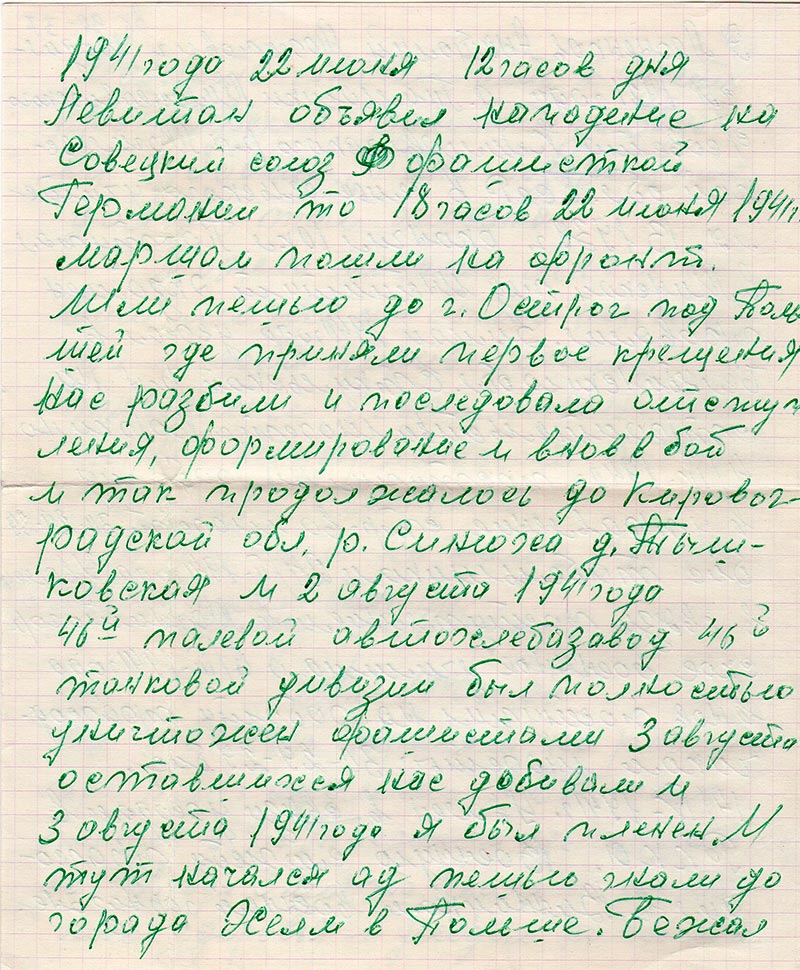 1941 года 22 июня 12 часов дня
Левитан объявил нападение на
Совецкий союз фашисткой
Германии то 18 часов 22 июня 1941г
маршом пошли на фронт.
Шли пешью до г. Острог под Поль
шей где приняли первое крещения
нас разбили и последовала отступ
ления, формирование и внов в бой
и так продолжалось до Кировог-
радской обл. р. Синюха д.
ковская и 2 августа 1941 года
46й палевой автохлебазавод 46й
танковой дивизии был полностью
уничтожен фашистами 3 августа
оставшихся нас добивали и
3 августа 1941 года я был пленен. И
тут начался ад пешью гнали до
города в Польше. Бежал